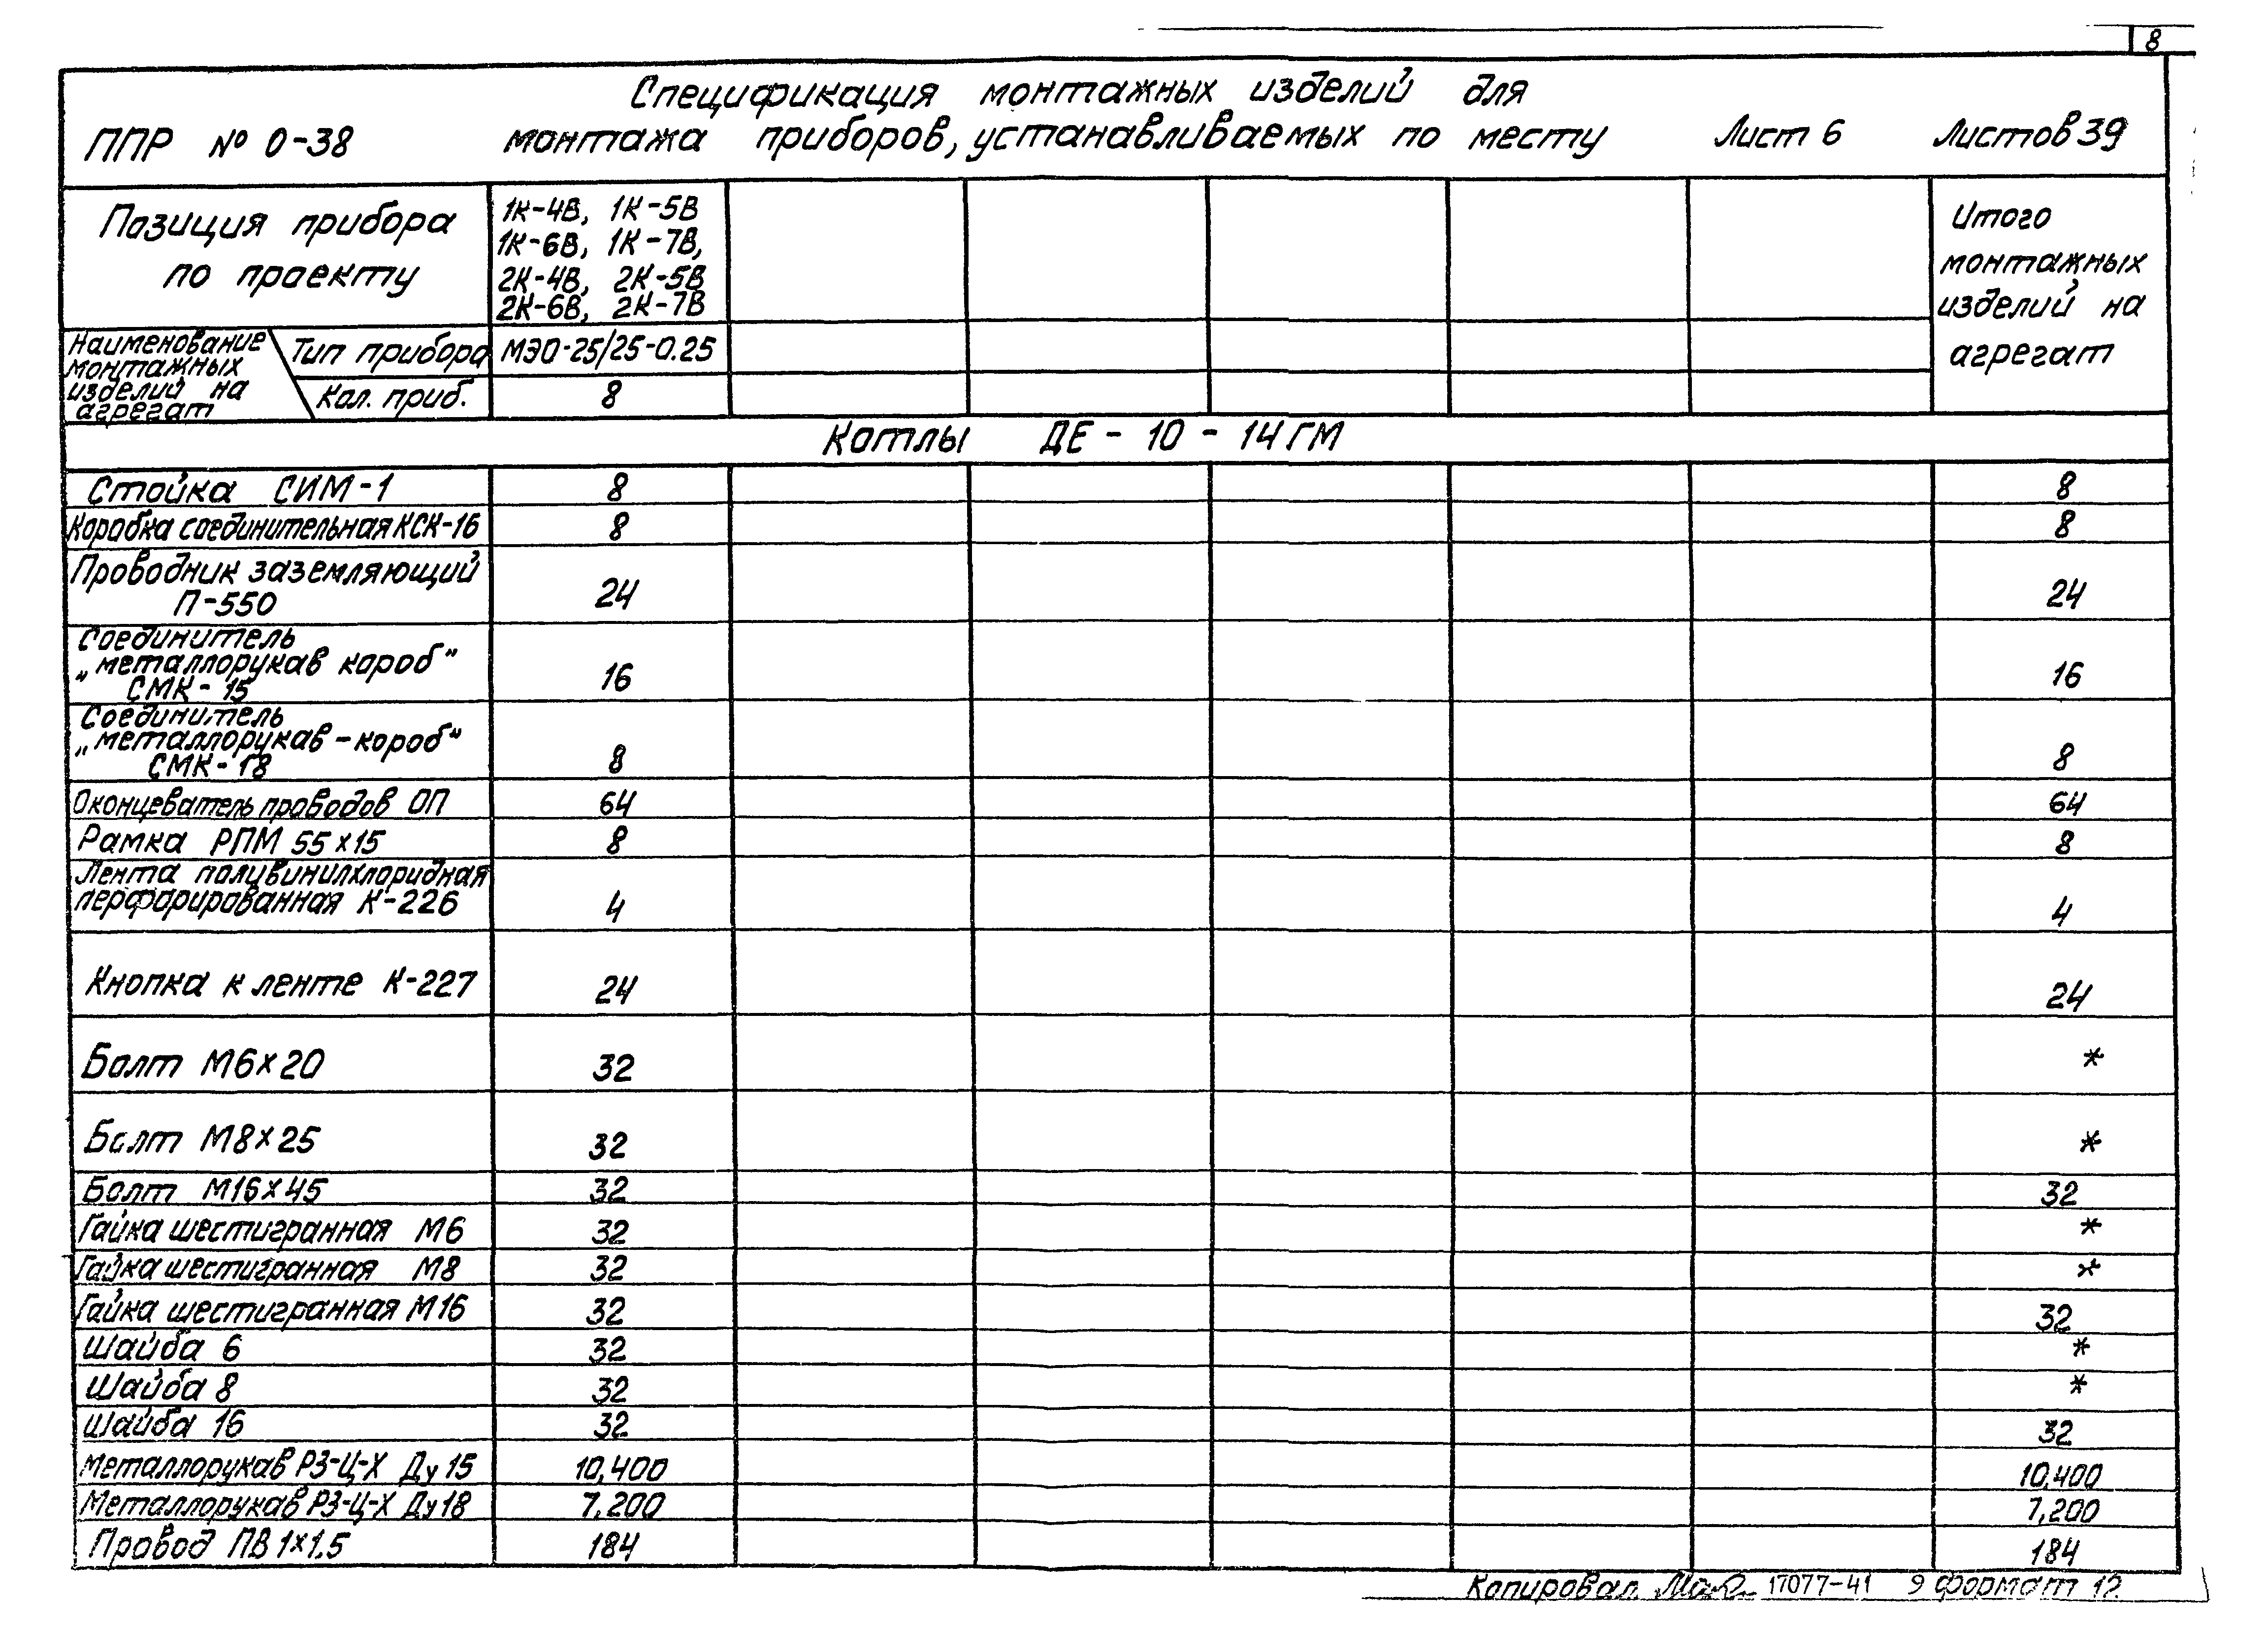 8
Спецификация монтажных изделий для
ППР № 0-38 монтажа приборов, устанавливаемых по месту Лист 6 Листов 39
Позиция прибора
по проекту
1К-4В, 1К-5В
1К-6В, 1К-7В,
2К-4В, 2К-5В
2К-6В, 2К-7В
Итого
монтажных
изделий на
агрегат
Наименование
монтажных
изделий на
агрегат
Тип прибора МЭО-25/25-0.25
Кол. приб. 8
Котлы ДЕ - 10 - 14 ГМ
Стойка СИМ-1 8 8
Коробка соединительная КСК-16 8 8
Проводник заземляющий
П-550 24 24
Соединитель
„металлорукав короб"
СМК-15 16 16
Соединитель
„металлорукав-короб"
СМК-18 8 8
Оконцеватель проводов ОП 64 64
Рамка РПМ 55х15 8 8
Лента поливинилхлоридная
перфорированная К-226 4 4
Кнопка к ленте К-227 24 24
Болт М6х20 32 *
Болт М8х25 32 *
Болт М16х45 32 32
Гайка шестигранная М6 32 *
Гайка шестигранная М8 32 *
Гайка шестигранная М16 32 32
Шайба 6 32 *
Шайба 8 32 *
Шайба 16 32 32
Металлорукав РЗ-Ц-Х Ду 15 10,400 10,400
Металлорукав РЗ-Ц-Х Ду 18 7,200 7,200
Провод ПВ 1х1.5 184 184
Копировал. 17077-41 9 формат 12.